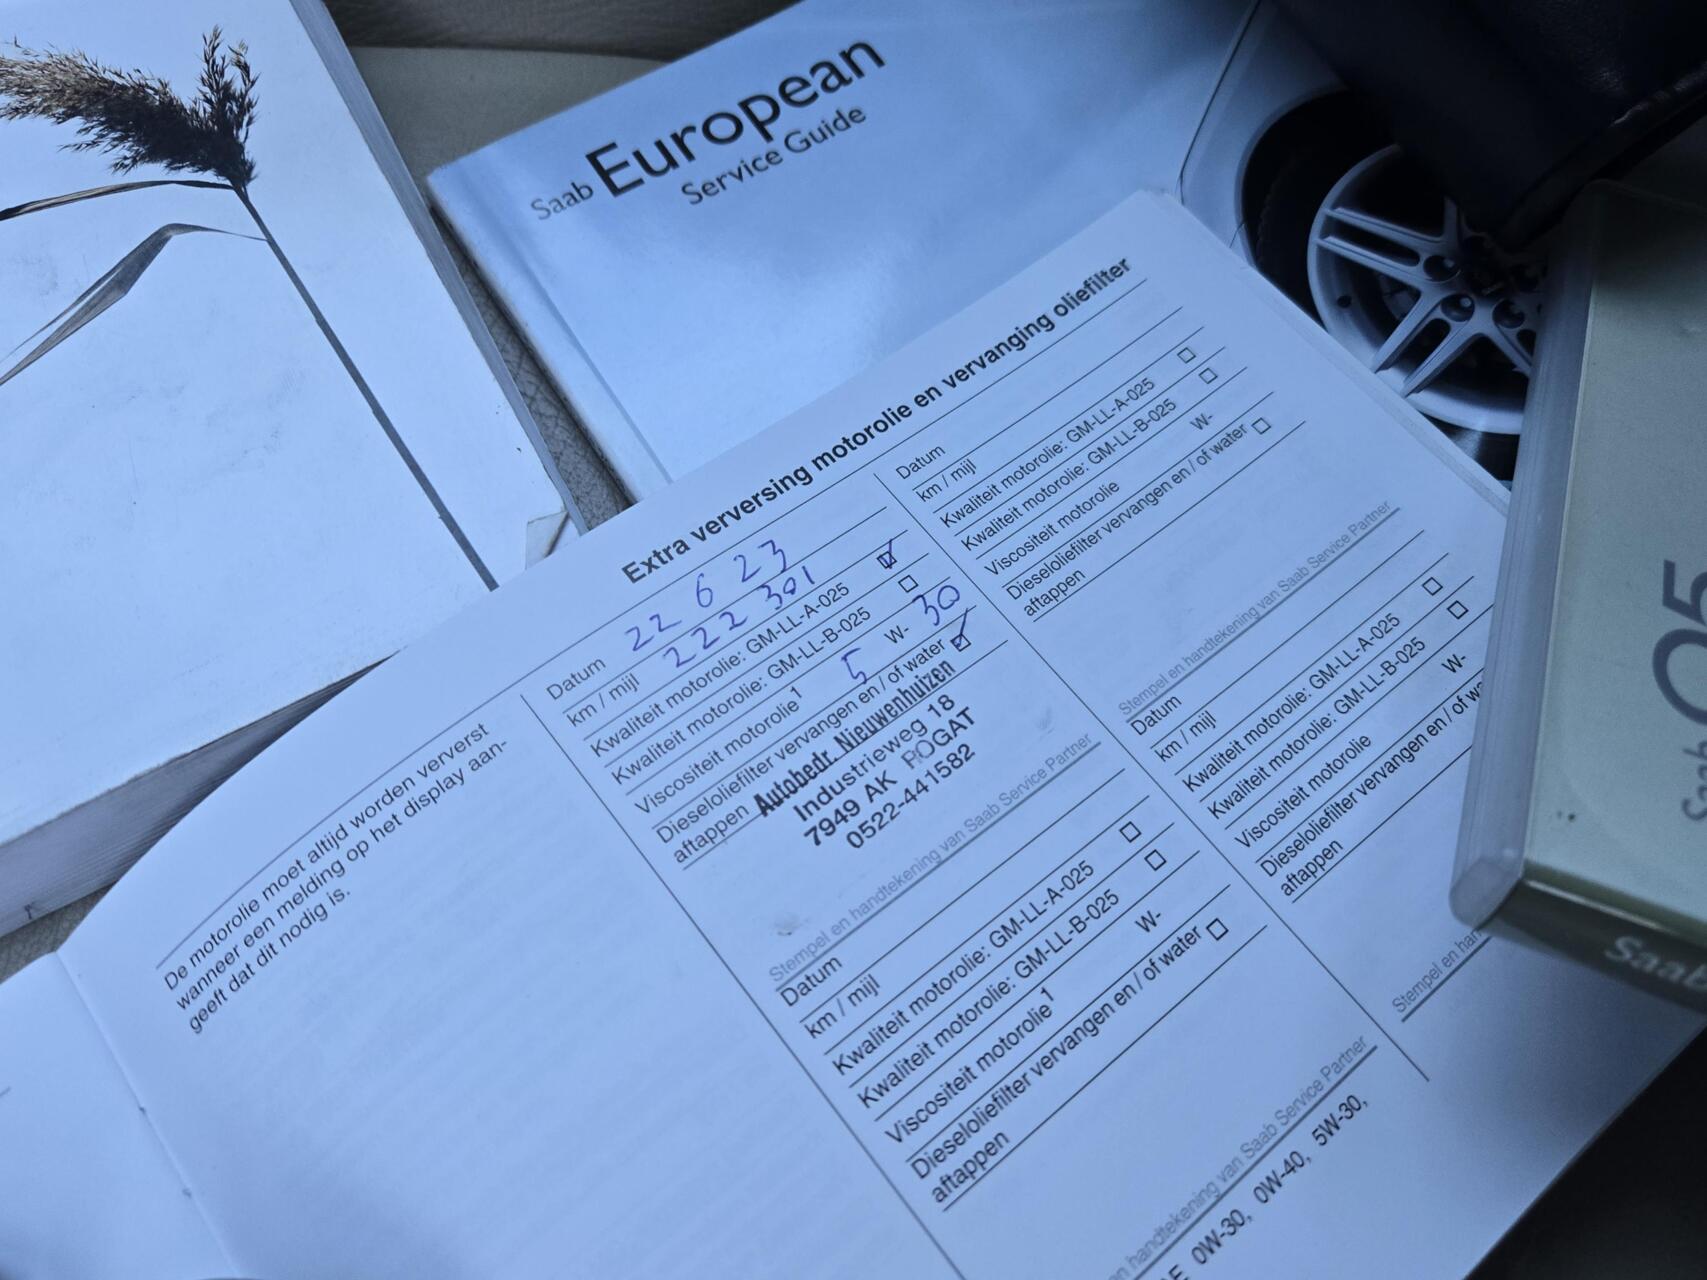 Saab European
Service Guide
Extra verversing motorolie en vervanging oliefilter
De motorolie moet altijd worden ververst
wanneer een melding op het display aan-
geeft dat dit nodig is.
Datum 22 6 23
km / mijl 222 301
Kwaliteit motorolie: GM-LL-A-025
Kwaliteit motorolie: GM-LL-B-025
Viscositeit motorolie1 5 W- 30
Dieseloliefilter vervangen en / of water
aftappen
Autobedr. Nieuwenhuizen
Industrieweg 18
7949 AK ROGAT
0522-441582
Stempel en handtekening van Saab Service Partner
Datum
km / mijl
Kwaliteit motorolie: GM-LL-A-025
Kwaliteit motorolie: GM-LL-B-025
Viscositeit motorolie1 W-
Dieseloliefilter vervangen en / of water
aftappen
handtekening van Saab Service Partner
Datum
km / mijl
Kwaliteit motorolie: GM-LL-A-025
Kwaliteit motorolie: GM-LL-B-025
Viscositeit motorolie W-
Dieseloliefilter vervangen en / of water
aftappen
Stempel en handtekening van Saab Service Partner
Datum
km / mijl
Kwaliteit motorolie: GM-LL-A-025
Kwaliteit motorolie: GM-LL-B-025
Viscositeit motorolie W-
Dieseloliefilter vervangen en / of
aftappen
Stempel en
0W-30, 0W-40, 5W-30,
Saab